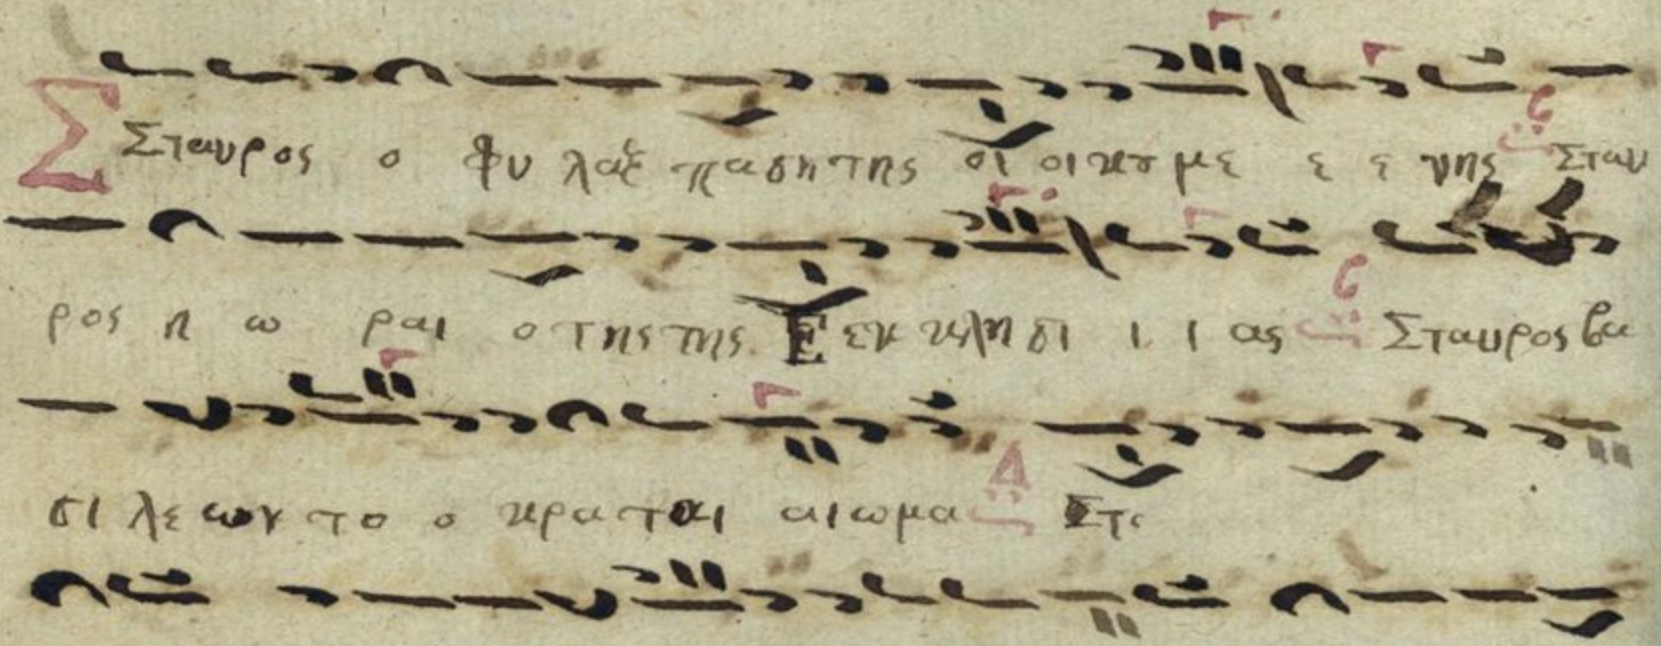 Σ Σταυρος ο φυ λαξ πασητης οι οικȣ με ε ε νης Σταυ
ρος η ω ραι ο τηςτης Ε εκ κλη σι ι ι ας Σταυρος βα
σι λε ων το ο κρα ται αιωμα Δ Στ